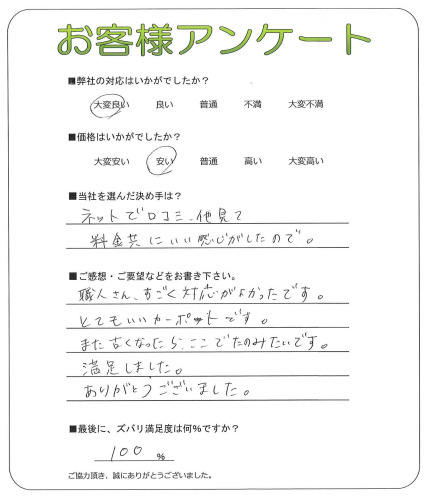 お客様アンケート
■弊社の対応はいかがでしたか？
大変良い 良い 普通 不満 大変不満
■価格はいかがでしたか？
大変安い 安い 普通 高い 大変高い
■当社を選んだ決め手は？
ネットで口コミ、他見て
料金共にいい感じがしたので。
■ご感想・ご要望などをお書き下さい。
職人さん、すごく対応がよかったです。
とてもいいカーポートです。
また古くなったら、ここでたのみたいです。
満足しました。
ありがとうございました。
■最後に、ズバリ満足度は何％ですか？
100 ％
ご協力頂き、誠にありがとうございました。